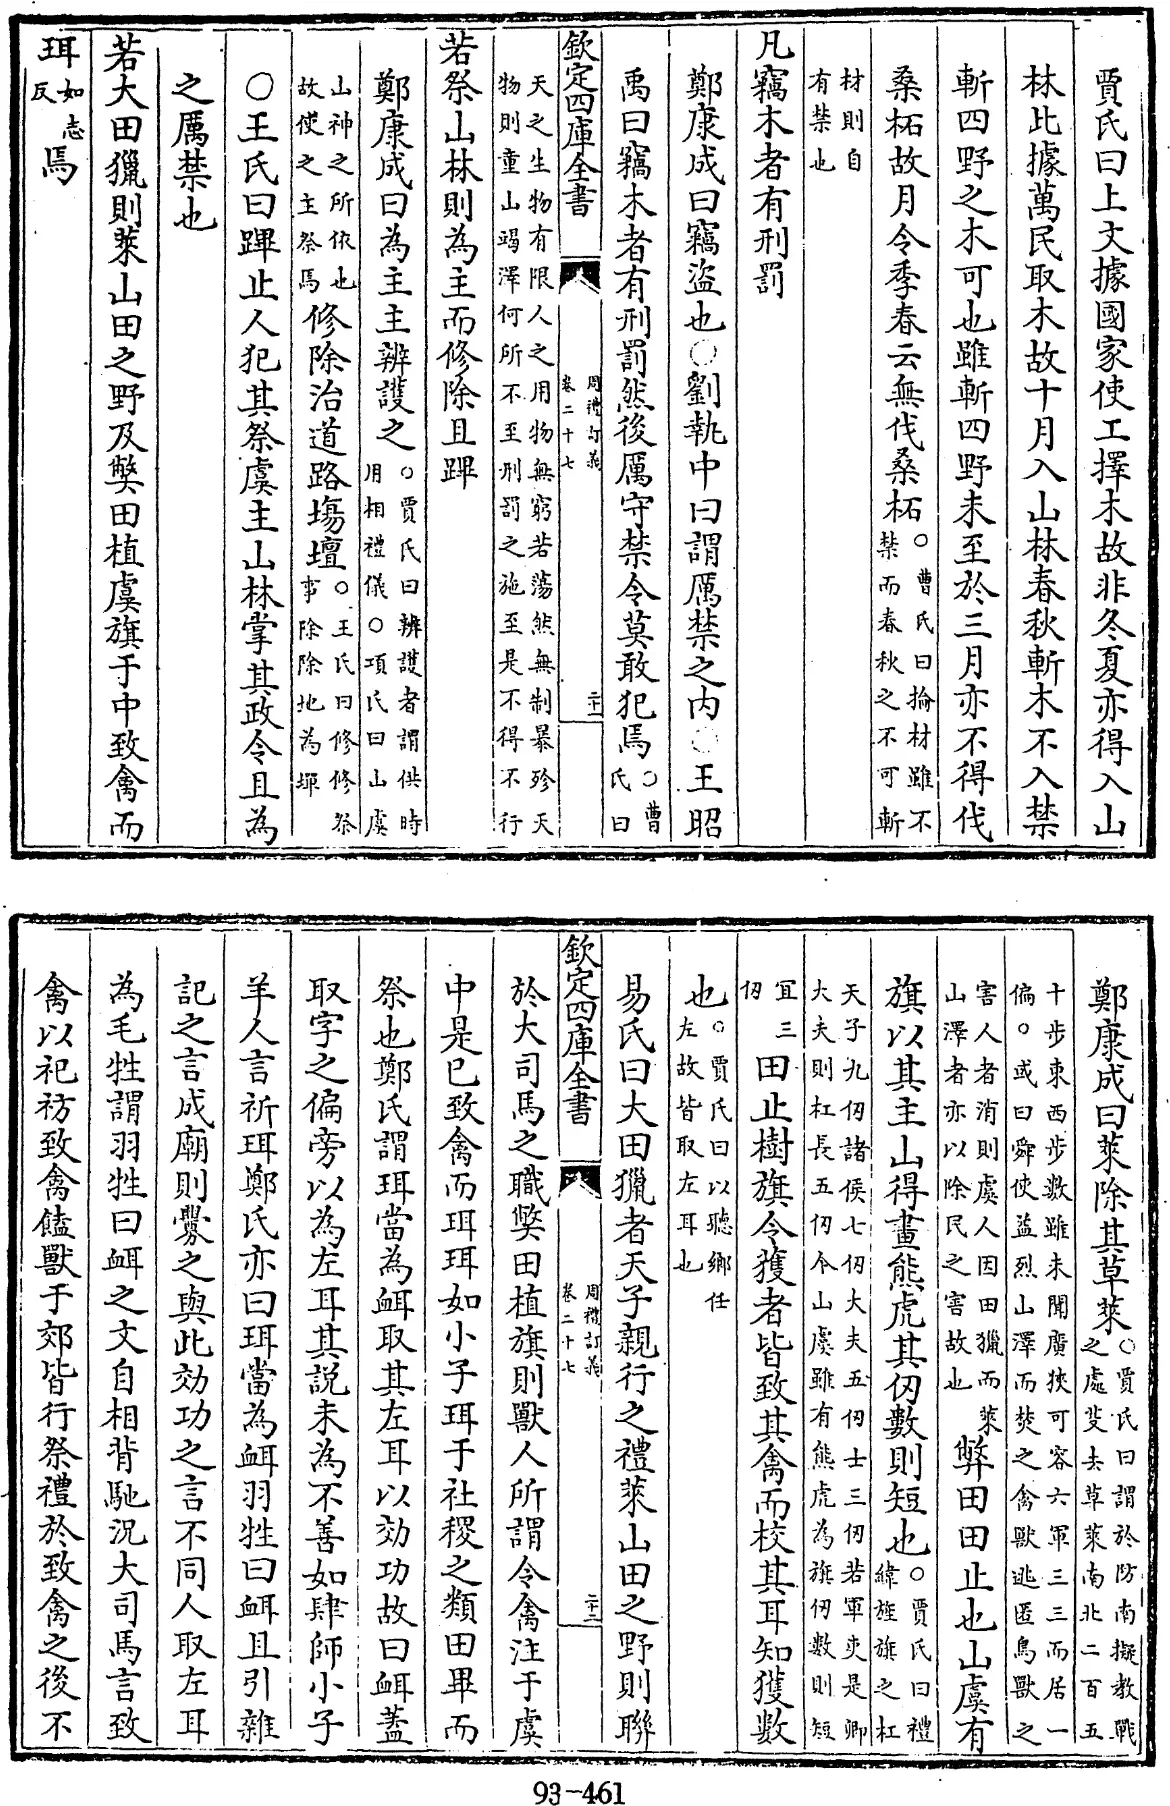 賈氏曰上文據國家使工擇木故非冬夏亦得入山
林此據萬民取木故十月入山林春秋斬木不入禁
斬四野之木可也雖斬四野未至於三月亦不得伐
桑柘故月令季春云無伐桑柘○曹氏曰掄材雖不
禁而春秋之不可斬
材則自
有禁也
凡竊木者有刑罰
鄭康成曰竊盜也○劉執中曰謂厲禁之内○王昭
禹曰竊木者有刑罰然後厲守禁令莫敢犯焉○曹
氏曰
欽定四庫全書
周禮訂義
卷二十七
二十一
天之生物有限人之用物無窮若蕩然無制暴殄天
物則童山竭澤何所不至刑罰之施至是不得不行
若祭山林則為主而修除且蹕
鄭康成曰為主主辨護之○賈氏曰辨護者謂供時
用相禮儀○項氏曰山虞
山神之所依也
故使之主祭焉
修除治道路場壇○王氏曰修修祭
事除除地為墠
○王氏曰蹕止人犯其祭虞主山林掌其政令且為
之厲禁也
若大田獵則萊山田之野及弊田植虞旗于中致禽而
珥如志
反焉
鄭康成曰萊除其草萊○賈氏曰謂於防南擬教戰
之處芟去草萊南北二百五
十步東西步數雖未聞廣狹可容六軍三三而居一
偏○或曰舜使益烈山澤而焚之禽獸逃匿鳥獸之
害人者消則虞人因田獵而萊
山澤者亦以除民之害故也
弊田田止也山虞有
旗以其主山得畫熊虎其仞數則短也○賈氏曰禮
緯旌旗之杠
天子九仞諸侯七仞大夫五仞士三仞若軍吏是卿
大夫則杠長五仞今山虞雖有熊虎為旗仞數則短
宜三
仞
田止樹旗令獲者皆致其禽而校其耳知獲數
也○賈氏曰以聽鄉任
左故皆取左耳也
易氏曰大田獵者天子親行之禮萊山田之野則聯
欽定四庫全書
周禮訂義
卷二十七
二十二
於大司馬之職弊田植旗則獸人所謂令禽注于虞
中是已致禽而珥珥如小子珥于社稷之類田畢而
祭也鄭氏謂珥當為衈取其左耳以効功故曰衈蓋
取字之偏旁以為左耳其説未為不善如肆師小子
羊人言祈珥鄭氏亦曰珥當為衈羽牲曰衈且引雜
記之言成廟則釁之與此効功之言不同人取左耳
為毛牲謂羽牲曰衈之文自相背馳況大司馬言致
禽以祀祊致禽饁獸于郊皆行祭禮於致禽之後不
93-461